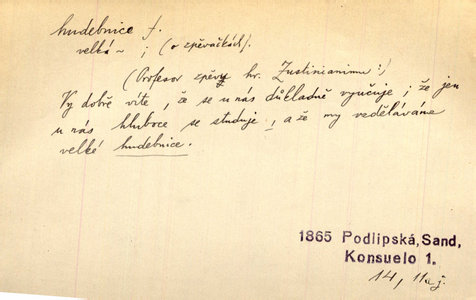 hudebnice f.
velká ~ ; (o zpěvačkách).
(Profesor zpěvu hr. Zustinianimu:)
Vy dobře víte, že se u nás důkladně vyučuje; že jen
u nás hluboce se studuje, a že my vzděláváme
velké hudebnice.
1865 Podlipská, Sand,
Konsuelo 1.
14, 11